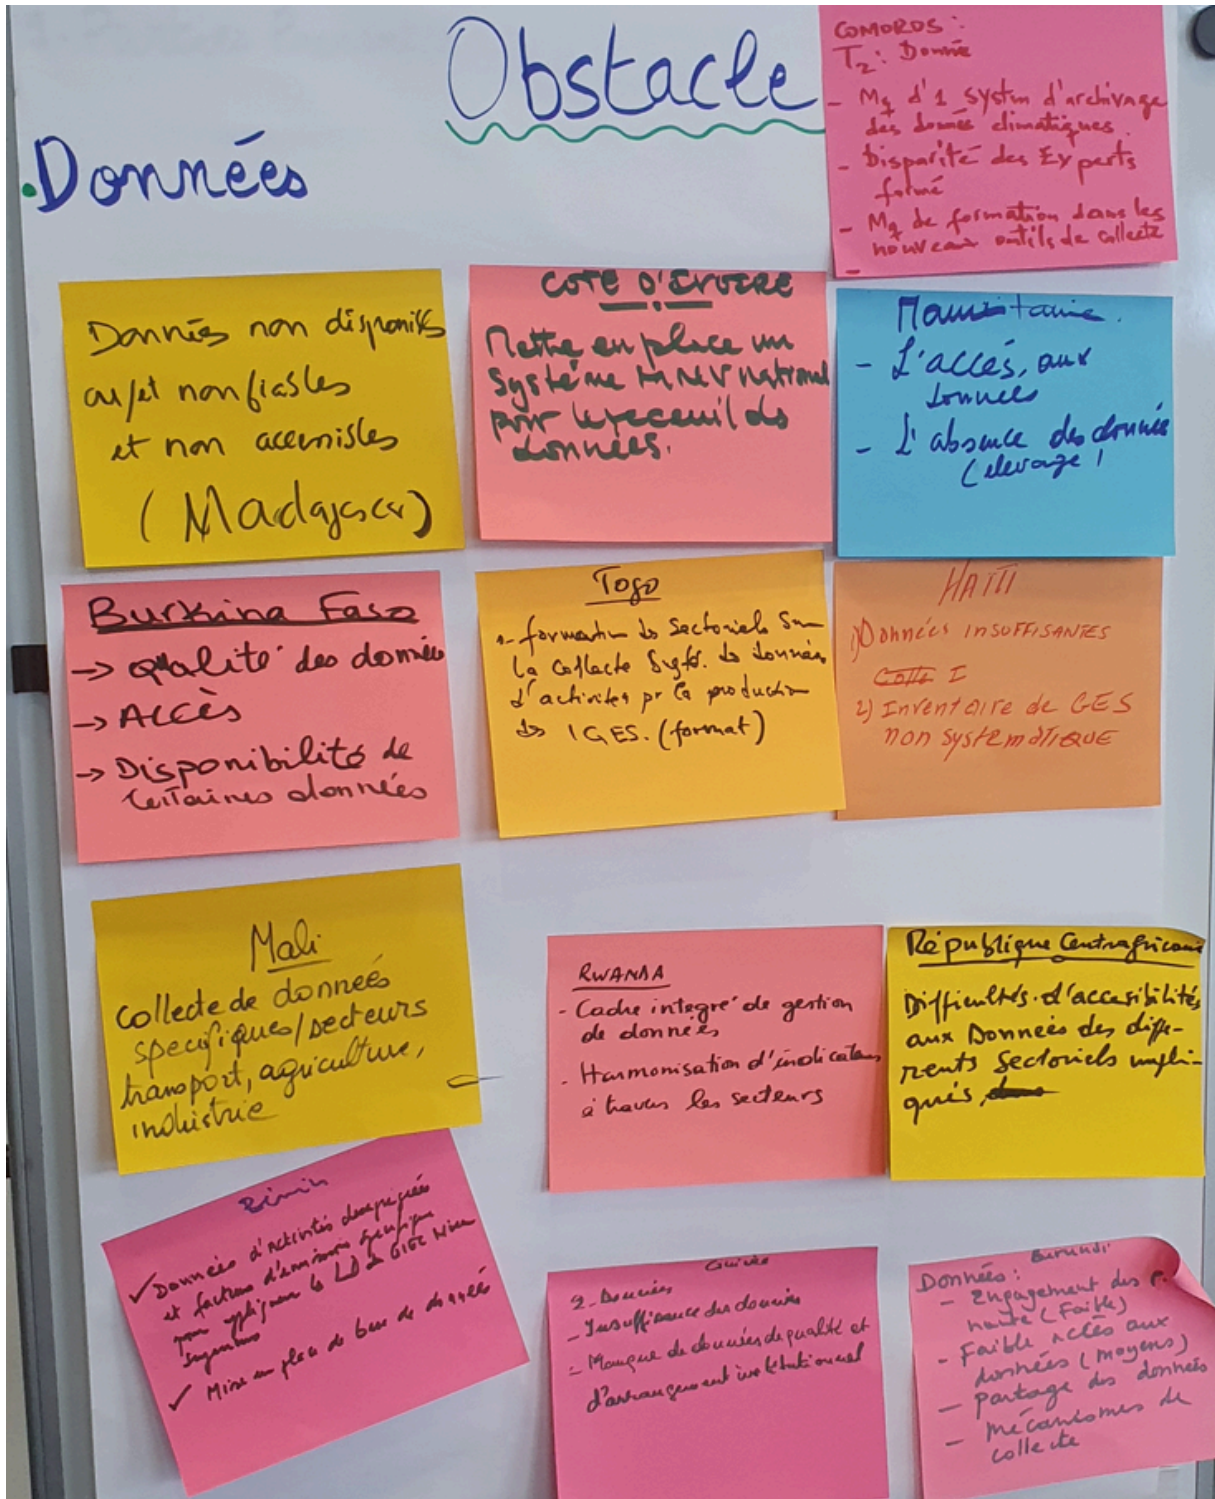 Obstacle
.Données
COMOROS :
T2 : Donnée
- Mq d'1 systm d'archivage
des donnés climatiques.
- Disparité des Experts
formé
- Mq de formation dans les
nouveaux outils de collecte
-
Données non disponibles
ou/et non fiables
et non accessibles
(Madagascar)
COTE D'IVOIRE
Mettre en place un
Système MNV national
pour le receuil des
données.
Mauritanie.
- L'accés, aux
données
- L'absence des données
(élevage)
Burkina Faso
→ Qualité des données
→ Accès
→ Disponibilité de
Certaines données
Togo
1- formation des Sectoriels Sur
la Collecte Systé. des données
d'activités pr la production
des IGES. (format)
HAITI
1) Données INSUFFISANTES
I
2) Inventaire de GES
non systEmaTIQUE
Mali
Collecte de données
specifiques/secteurs
transport, agriculture,
industrie
RWANDA
- Cadre integré de gestion
de données
- Harmonisation d'indicateurs
à travers les secteurs
République Centrafricaine
Difficultés d'accesibilités
aux Donnees des diffe-
rents Sectoriels impli-
qués,
Bénin
✓ Données d'Activités désagrégées
et facteurs d'émissions spécifique
pour appliquer les LD du GIEC Niveau
Supérieurs
✓ Mise en place de base de données
Guinée
2- Données
- Insuffisance des données
- Manque de données de qualité et
d'arrangement institutionnel
Burundi
Données :
- Engagement des P.
naute (Faible)
- Faible accès aux
données (moyens)
- partage des données
- mécanismes de
collecte